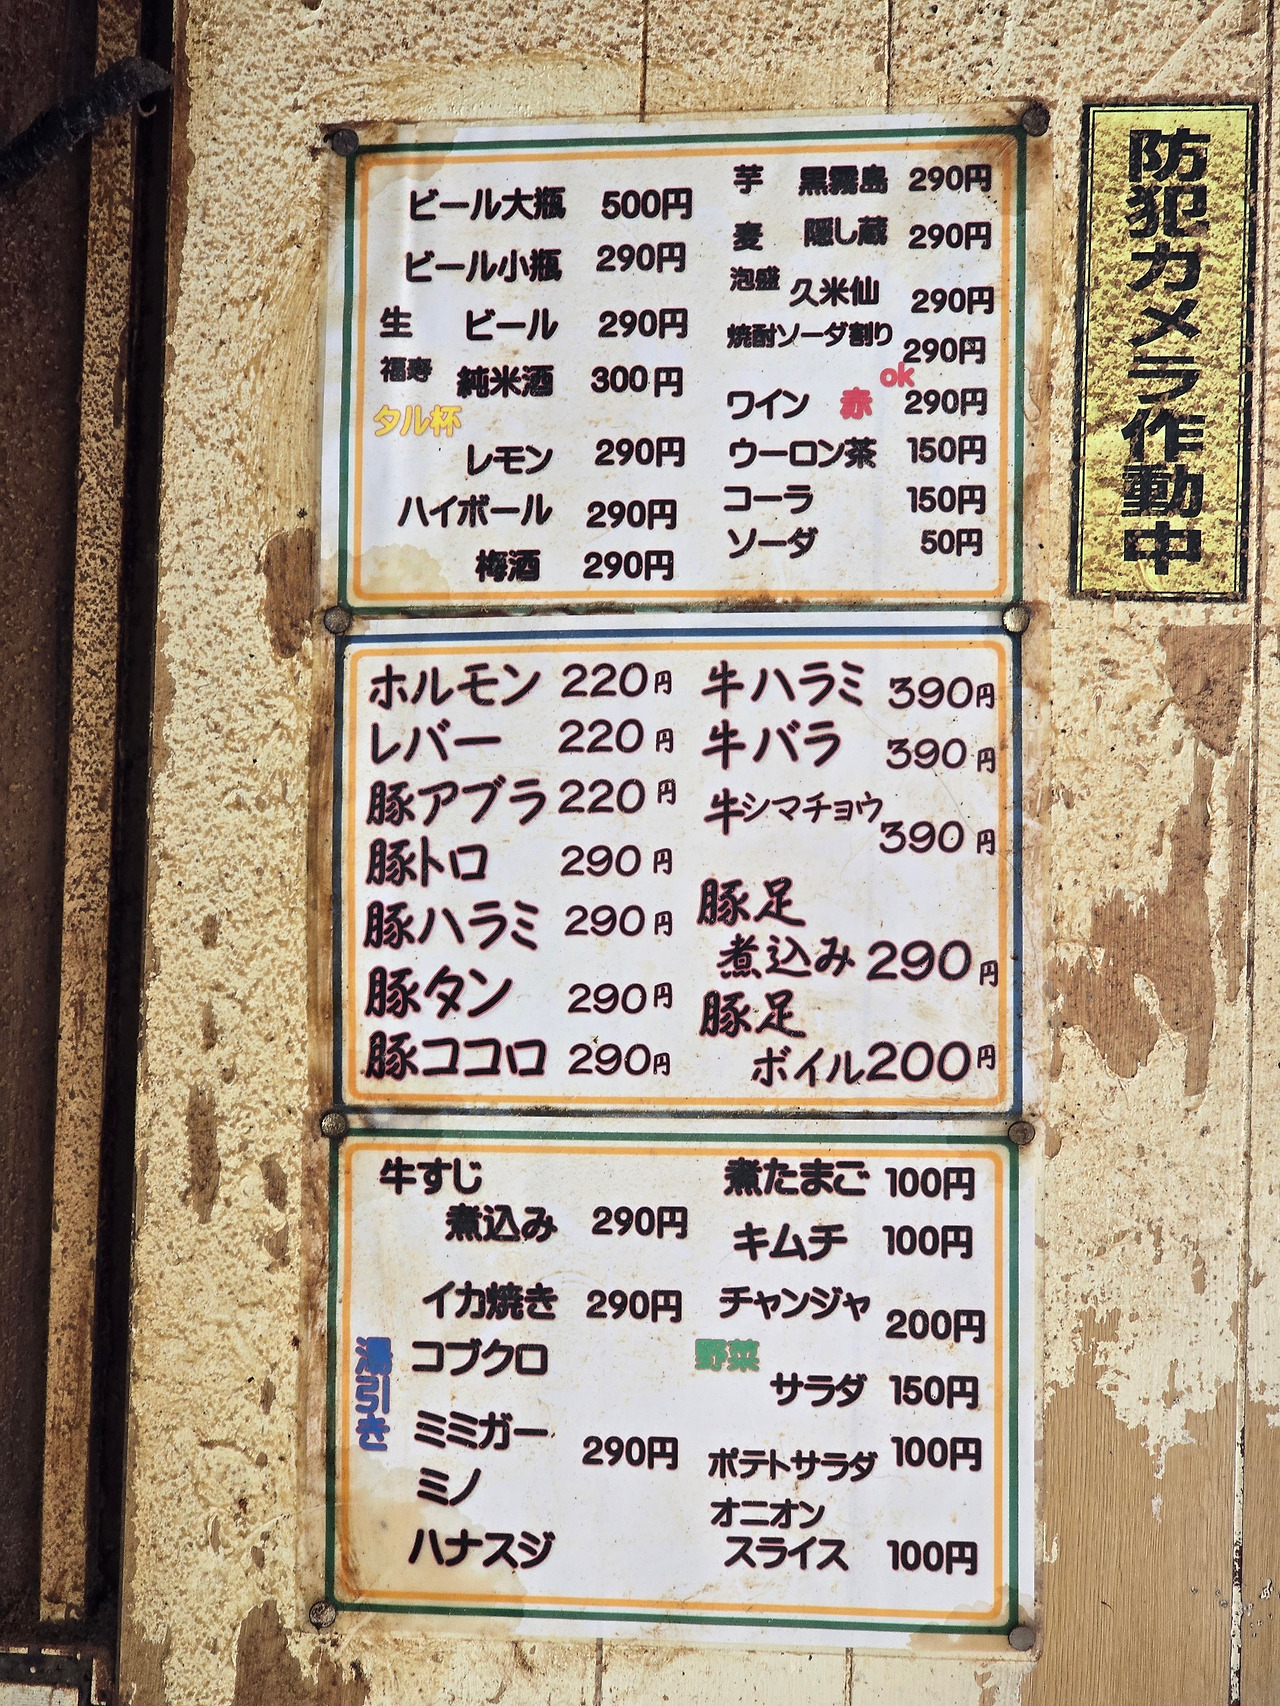 ビール大瓶 500円
ビール小瓶 290円
生 ビール 290円
福寿 純米酒 300円
タル杯
レモン 290円
ハイボール 290円
梅酒 290円
芋 黒霧島 290円
麦 隠し蔵 290円
泡盛 久米仙 290円
焼酎ソーダ割り 290円
ok
ワイン 赤 290円
ウーロン茶 150円
コーラ 150円
ソーダ 50円
ホルモン 220円
レバー 220円
豚アブラ 220円
豚トロ 290円
豚ハラミ 290円
豚タン 290円
豚ココロ 290円
牛ハラミ 390円
牛バラ 390円
牛シマチョウ 390円
豚足
煮込み 290円
豚足
ボイル 200円
牛すじ
煮込み 290円
イカ焼き 290円
湯引き
コブクロ
ミミガー
290円
ミノ
ハナスジ
煮たまご 100円
キムチ 100円
チャンジャ 200円
野菜
サラダ 150円
ポテトサラダ 100円
オニオン
スライス 100円
防犯カメラ作動中